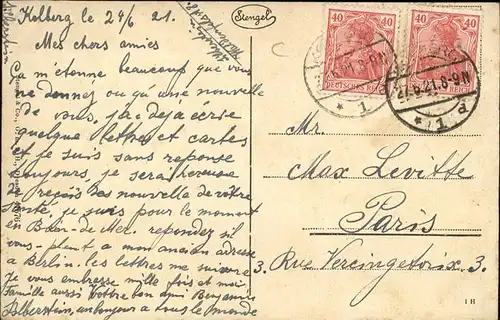 Kolberg le 24/6 21.
Mes chers amies
Ça m'étonne beaucoup que vous
ne donnez ou que une nouvelle
de vous, j'ai dejà écrie
quelque lettres et cartes
et je suis sans reponse
toujours, je serai heureuse
de reçois des nouvelle de vôtre
santé, je suis pour le moment
en Bain-de-Mer. repondez sil
vous-plent a mon ancien adresse
a Berlin. les lettres me suivre
Je vous embresse mille fois et moi
Famille aussi Vottre bon ami Benjamin
Silberstein, un bonjour a tous le monde
Stengel
40 40
40 40
DEUTSCHES REICH
REICH
21.8-9N
27.6.21.8-9N
* 1 d
* 1 d
Mr.
Max Levitte
Paris
3. Rue Vercingetorix. 3.
I H